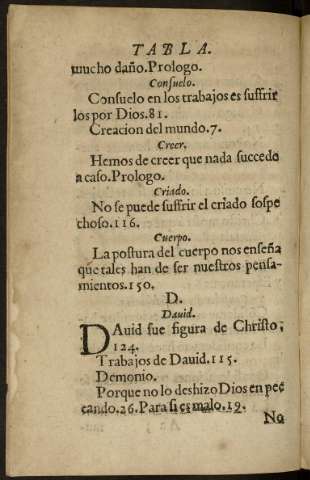 TABLA.
mucho daño.Prologo.
Consuelo.
Consuelo en los trabajos es suffrir
los por Dios.81.
Creacion del mundo.7.
Creer.
Hemos de creer que nada succede
a caso.Prologo.
Criado.
No se puede suffrir el criado sospe
choso.116.
Cuerpo.
La postura del cuerpo nos enseña
que tales han de ser nuestros pensa-
mientos.150.
D.
Dauid.
DAuid fue figura de Christo,
124.
Trabajos de Dauid.115.
Demonio.
Porque no lo deshizo Dios en pec
cando.26. Para si es malo.19.
No